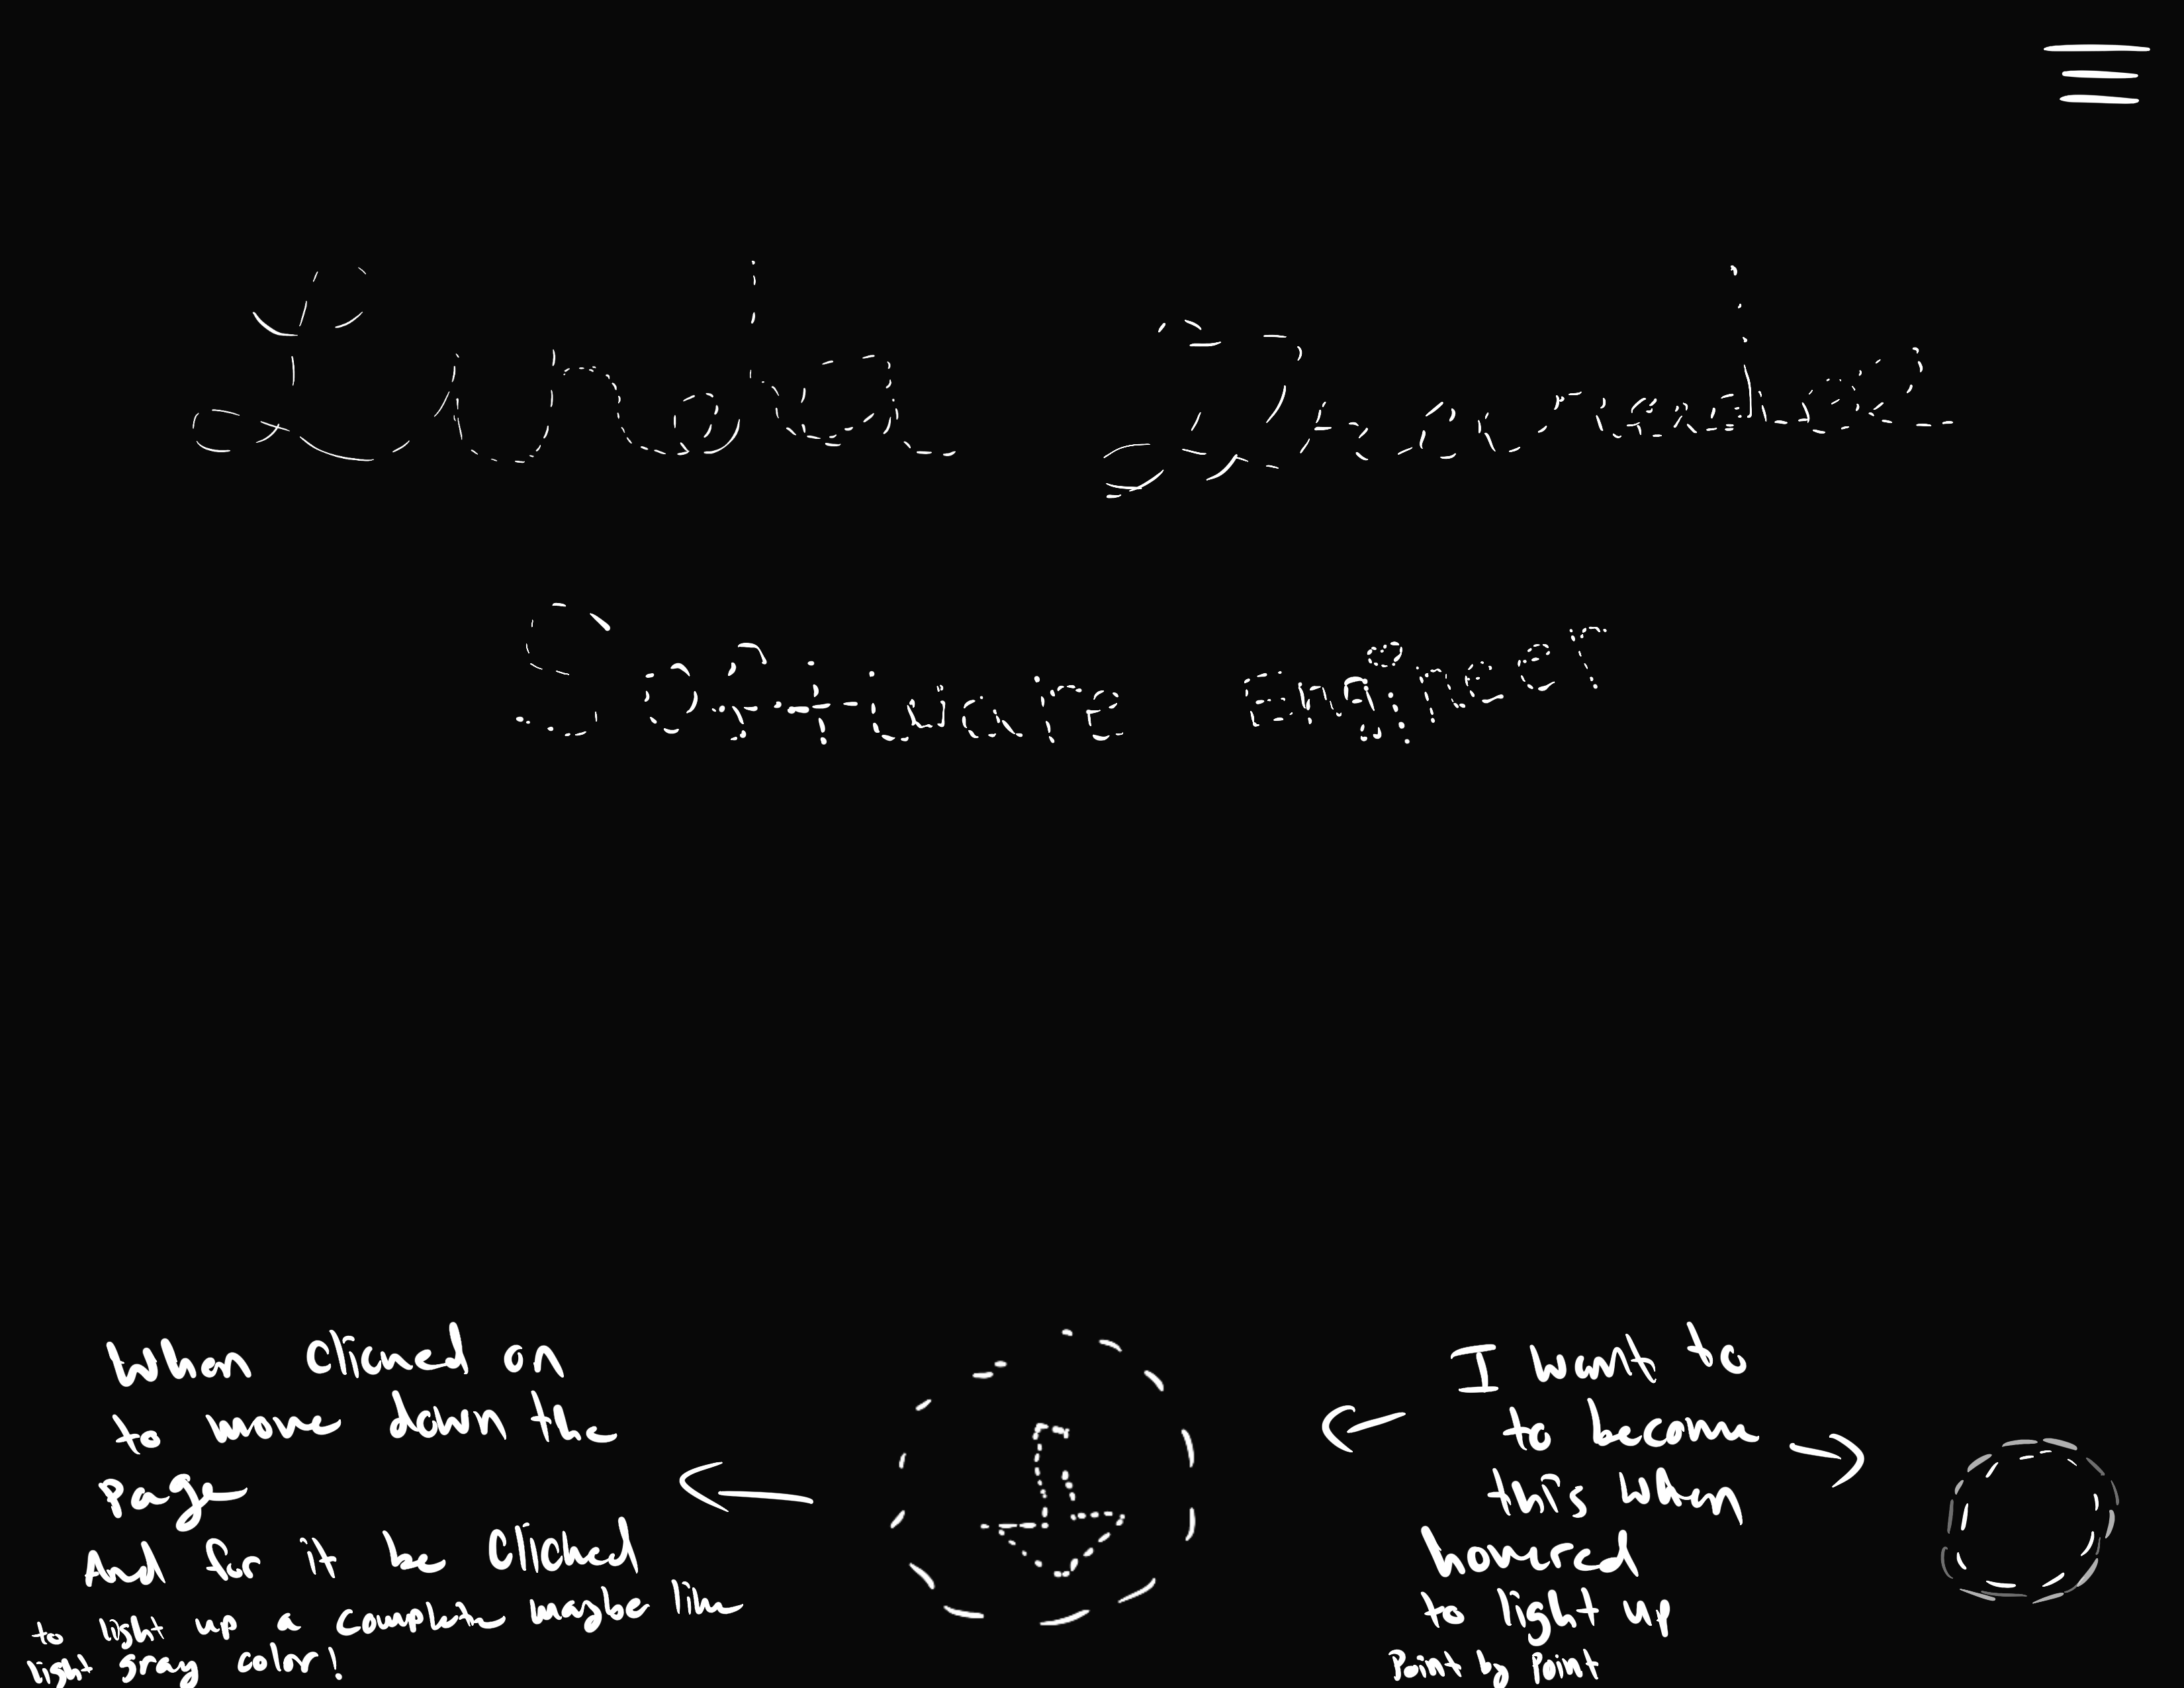 Linda
Software engineer
When Clicked on
to move down the
page
And for it be Clicked
to light up a complete maybe like
light gray color!
I want to
to become
this when
hovered
to light up
Point by Point